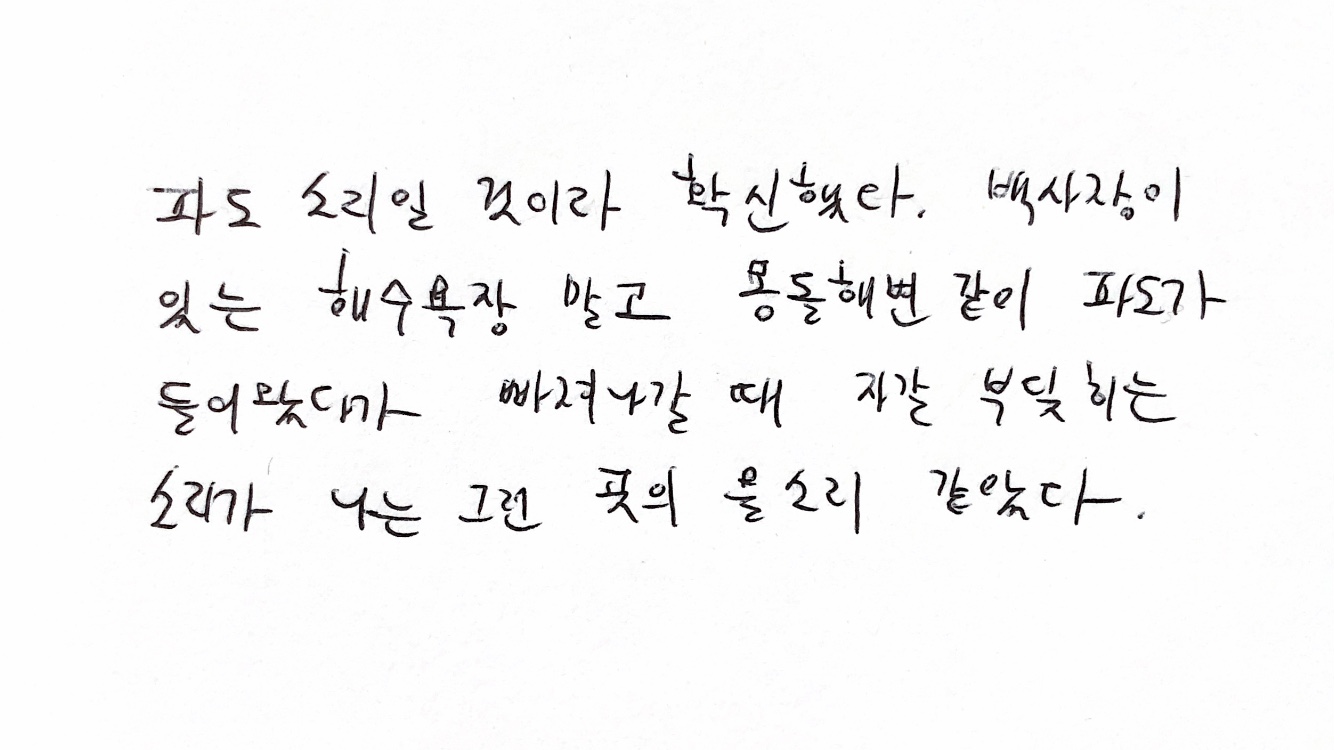 파도 소리일 것이라 확신했다. 백사장이
있는 해수욕장 말고 몽돌해변 같이 파도가
들어왔다가 빠져나갈 때 자갈 부딪히는
소리가 나는 그런 곳의 물소리 같았다.